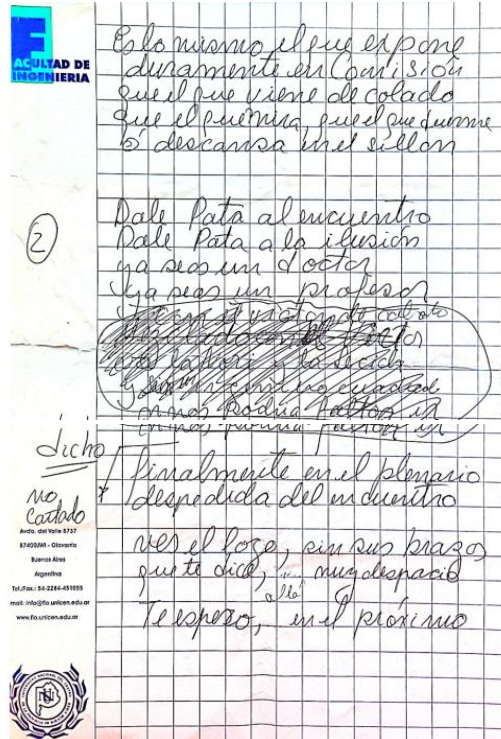 FACULTAD DE
INGENIERIA
Es lo mismo el que expone
duramente en Comisión
que el que viene de colado
que el que mira, que el que duerme
ó descansa en el sillón
2
Dale Pata al encuentro
Dale Pata a la ilusión
ya seas un doctor
ya seas un profesor
dicho
no
Cantado
finalmente en el plenario
despedida del encuentro
ves el logo, sin sus brazos
que te dice, muy despacio
Te espero, "allá" en el próximo
Avda. del Valle 5737
B7400JWI - Olavarría
Buenos Aires
Argentina
Tel./Fax.: 54-2284-451055
mail: info@fio.unicen.edu.ar
www.fio.unicen.edu.ar